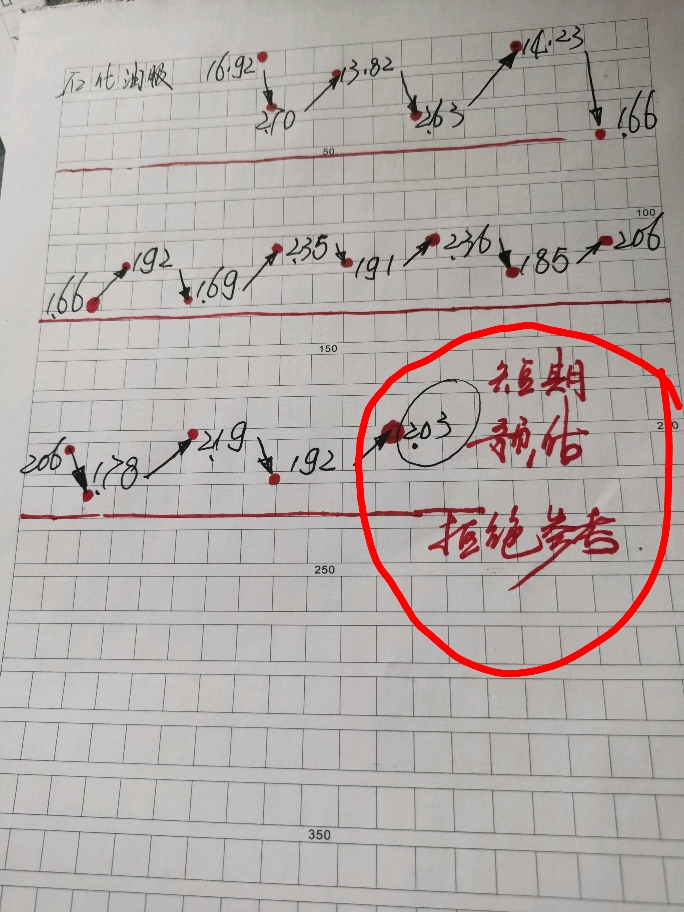 石化油服 16.92 2.70 13.82 2.63 14.23 1.66
50
100
1.66 1.92 1.69 2.35 1.91 2.36 1.85 2.06
150
短期
200
2.06 1.78 2.19 1.92 2.03 预估
拒绝参考
250
350